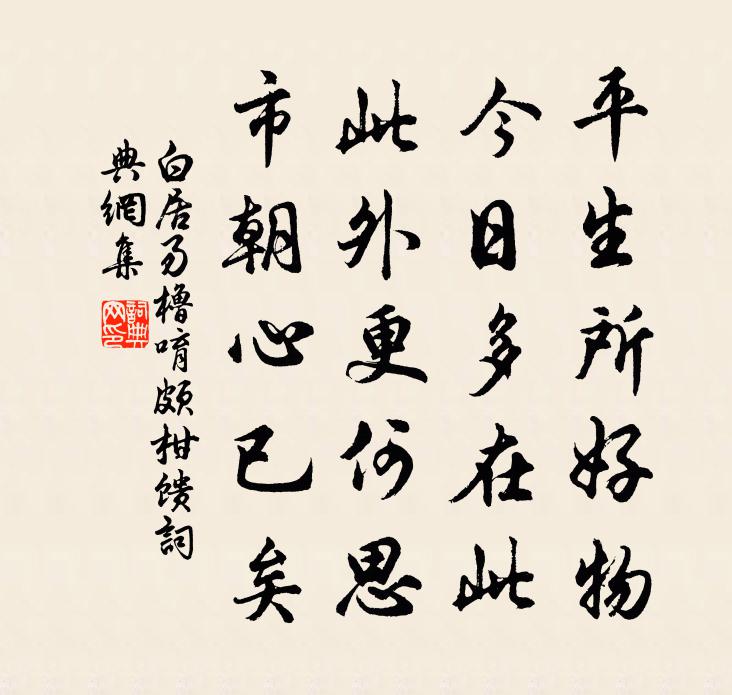 平生所好物
今日多在此
此外更何思
市朝心已矣
白居易橹唷颇柑馈詞
典網集
詞典
网印